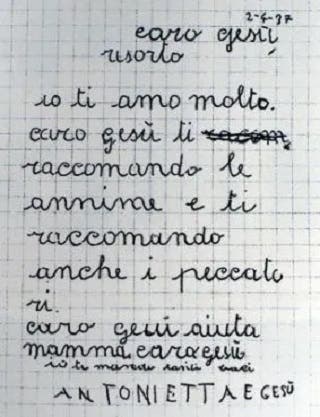 2-4-37
caro gesù
risorto
io ti amo molto.
caro gesù ti racom
raccomando le
annime e ti
raccomando
anche i peccato
ri.
caro gesù aiuta
mamma. caro gesù
io ti mando tanti baci
ANTONIETTA E GESÙ